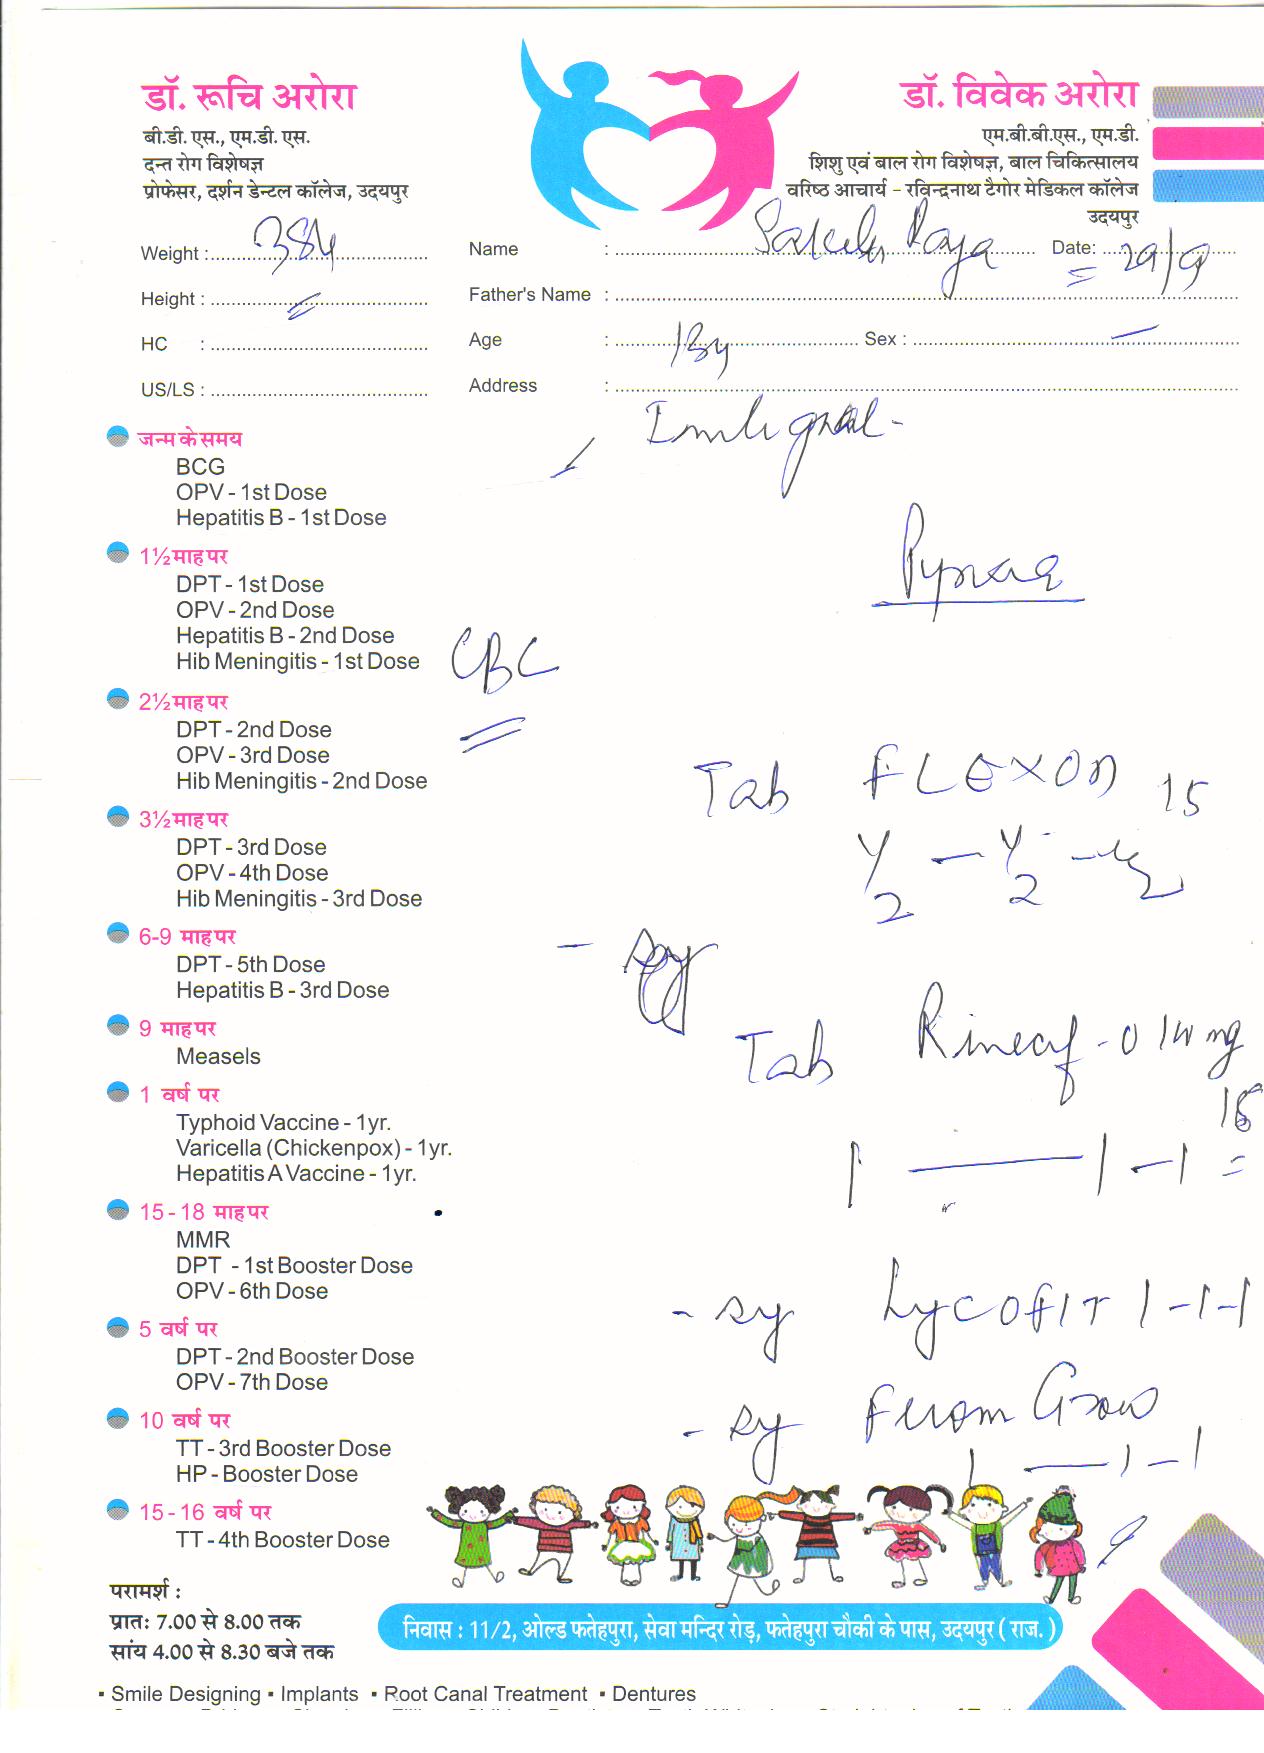 डॉ. रूचि अरोरा
बी.डी. एस., एम.डी. एस.
दन्त रोग विशेषज्ञ
प्रोफेसर, दर्शन डेन्टल कॉलेज, उदयपुर
डॉ. विवेक अरोरा
एम.बी.बी.एस., एम.डी.
शिशु एवं बाल रोग विशेषज्ञ, बाल चिकित्सालय
वरिष्ठ आचार्य - रविन्द्रनाथ टैगोर मेडिकल कॉलेज
उदयपुर
Weight :
Name : Date: 29/9
Height :
Father's Name :
HC :
Age : 13y Sex :
US/LS :
Address :
जन्म के समय
BCG
OPV - 1st Dose
Hepatitis B - 1st Dose
1½ माह पर
DPT - 1st Dose
OPV - 2nd Dose
Hepatitis B - 2nd Dose
Hib Meningitis - 1st Dose
2½ माह पर
DPT - 2nd Dose
OPV - 3rd Dose
Hib Meningitis - 2nd Dose
3½ माह पर
DPT - 3rd Dose
OPV - 4th Dose
Hib Meningitis - 3rd Dose
6-9 माह पर
DPT - 5th Dose
Hepatitis B - 3rd Dose
9 माह पर
Measels
1 वर्ष पर
Typhoid Vaccine - 1yr.
Varicella (Chickenpox) - 1yr.
Hepatitis A Vaccine - 1yr.
15 - 18 माह पर
MMR
DPT - 1st Booster Dose
OPV - 6th Dose
5 वर्ष पर
DPT - 2nd Booster Dose
OPV - 7th Dose
10 वर्ष पर
TT - 3rd Booster Dose
HP - Booster Dose
15 - 16 वर्ष पर
TT - 4th Booster Dose
CBC
Tab FLEXON 15
1/2 - 1/2 - 1/2
Tab
1 - 1 - 1
- sy LYCOFIT 1 - 1 - 1
- sy
1 - 1 - 1
परामर्श :
प्रातः 7.00 से 8.00 तक
सांय 4.00 से 8.30 बजे तक
निवास : 11/2, ओल्ड फतेहपुरा, सेवा मन्दिर रोड़, फतेहपुरा चौकी के पास, उदयपुर ( राज. )
▪ Smile Designing ▪ Implants ▪ Root Canal Treatment ▪ Dentures